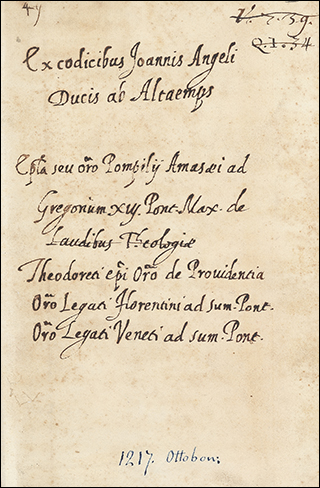 4y
V. 7. 59.
Q. 1. 34
Ex codicibus Joannis Angeli
Ducis ab Altaemps
Epła seu oro Pompilij Amasæi ad
Gregorium xiij. Pont. Max. de
Laudibus Theologiæ
Theodoreti epi Oro de Providentia
Oro Legati Florentini ad sum. Pont.
Oro Legati Veneti ad sum. Pont.
1217. Ottobon: